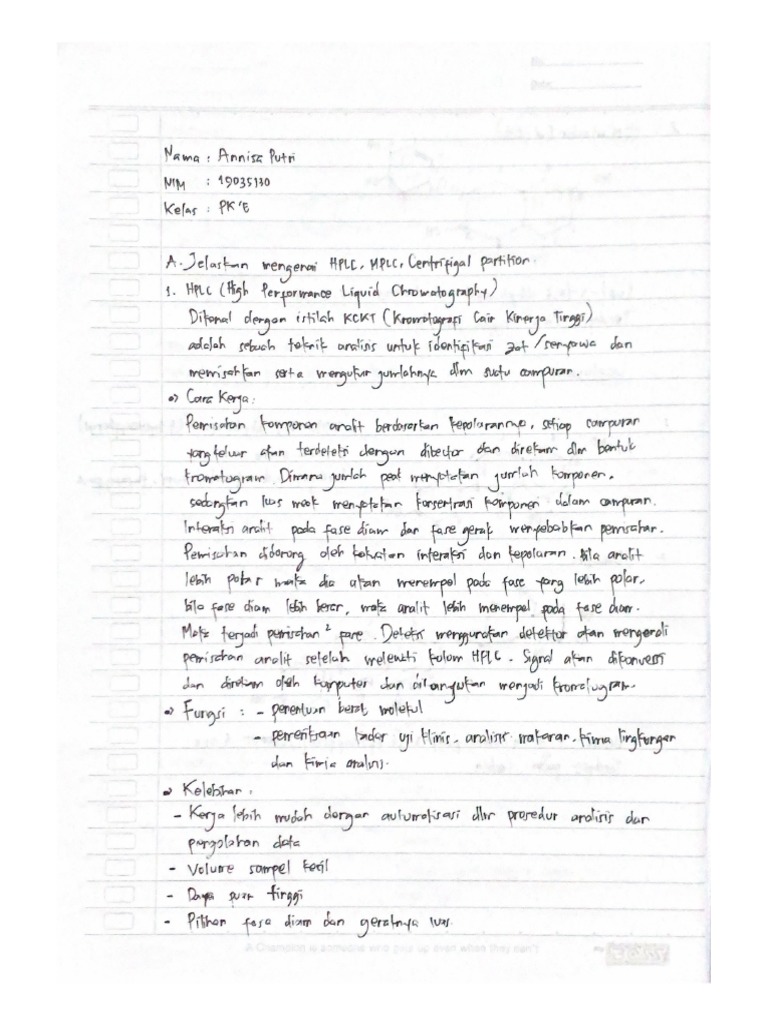 No.
Date.
Nama : Annisa Putri
NIM : 19035130
Kelas : PK'E
A. Jelaskan mengenai HPLC, MPLC, Centrifigal partition.
1. HPLC (High Performance Liquid Chromatography)
Dikenal dengan istilah KCKT (Kromatografi Cair Kinerja Tinggi)
adalah sebuah teknik analisis untuk identifikasi zat / senyawa dan
memisahkan serta mengukur jumlahnya dlm suatu campuran.
Cara Kerja:
Pemisahan komponen analit berdasarkan kepolarannya, setiap campuran
yang keluar akan terdeteksi dengan ditector dan direkam dlm bentuk
kromatogram. Dimana jumlah peak menyatakan jumlah komponen,
sedangkan luas menyatakan konsentrasi komponen dalam campuran.
Interaksi analit pada fase diam dan fase gerak menyebabkan pemisahan.
Pemisahan didorong oleh kekuatan interaksi dan kepolaran. Bila analit
lebih polar maka dia akan menempel pada fase yang lebih polar,
bila fase diam lebih besar, maka analit lebih menempel pada fase diam.
Maka terjadi pemisahan² fase. Deteksi menggunakan detektor akan mengenali
pemisahan analit setelah melewati kolom HPLC. Signal akan dikonversi
dan direkam oleh komputer dan menjadi kromatogram.
Fungsi : - penentuan berat molekul
- pemeriksaan kadar uji klinis, analisis makanan, kimia lingkungan
dan kimia analisis.
Kelebihan :
- Kerja lebih mudah dengan automatisasi dlm prosedur analisis dan
pengolahan data
- Volume sampel kecil
- Daya tinggi
- Pilihan fasa diam dan geraknya luas.
A Champion is someone who gets up even when they can't